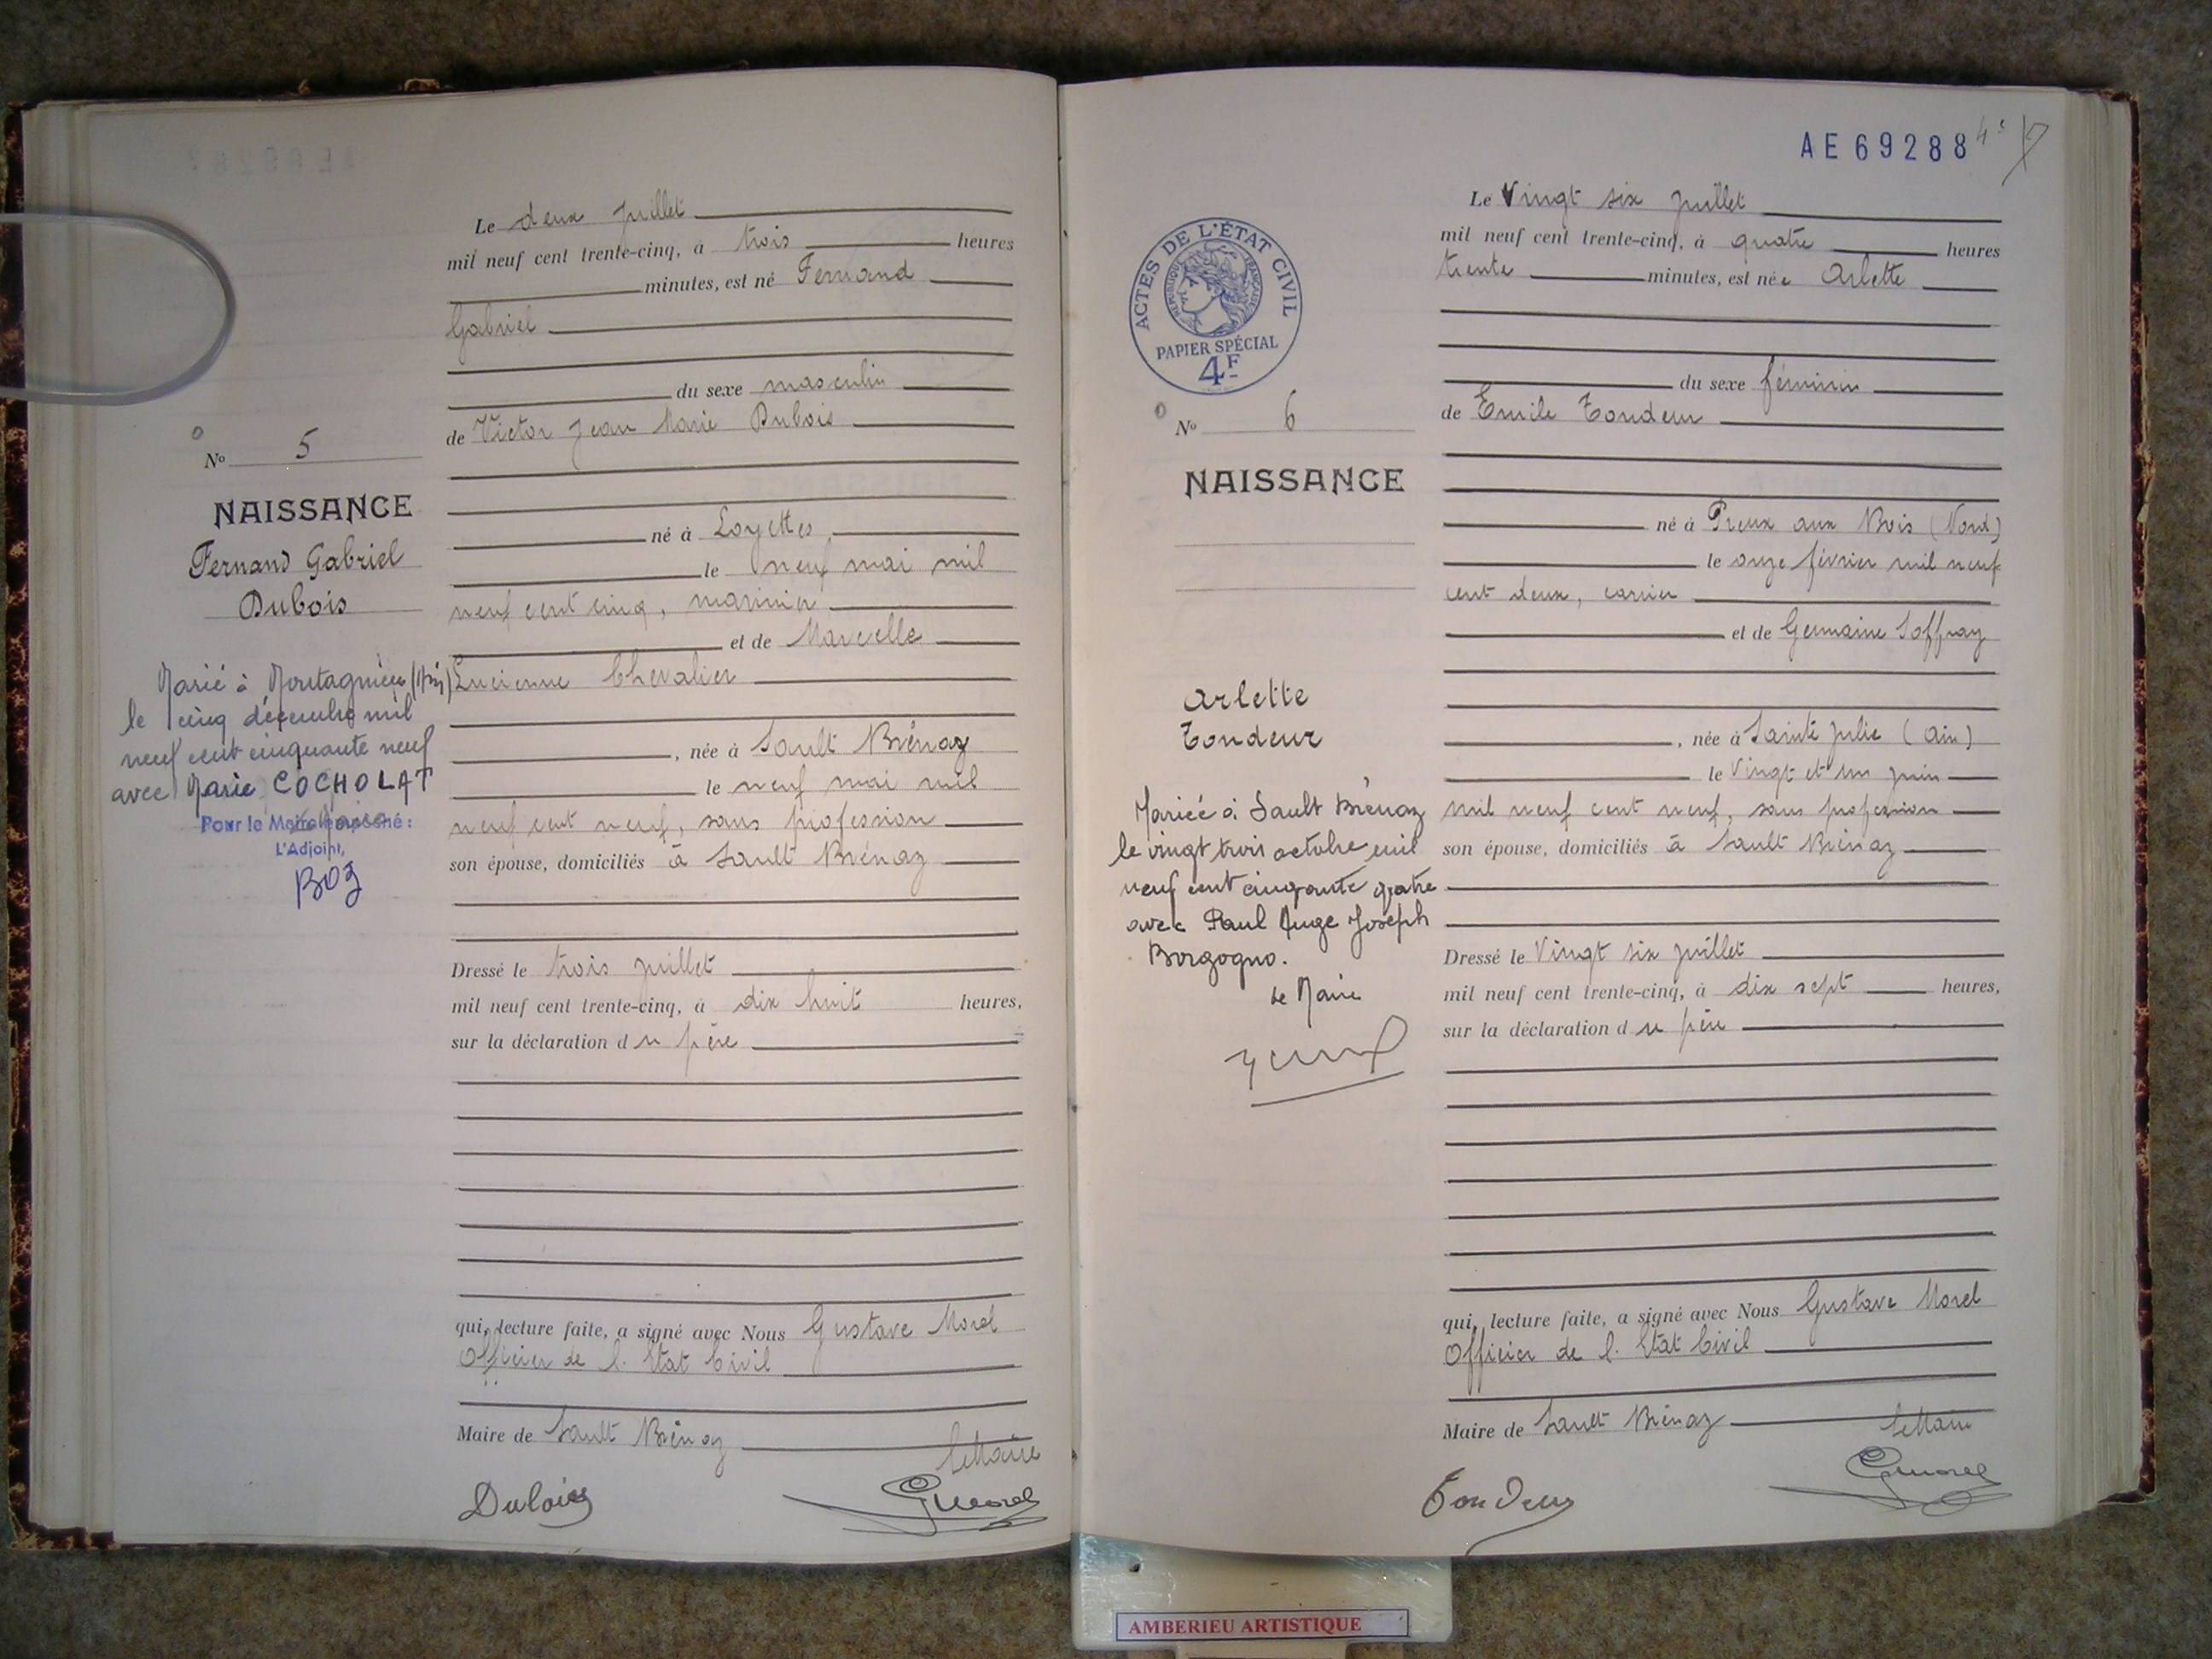 Le deux juillet
mil neuf cent trente-cinq, à trois heures
minutes, est né Fernand
Gabriel
du sexe masculin
de Victor Jean Marie Dubois
né à Loyettes,
le neuf mai mil
neuf cent cinq, marinier
et de Marcelle
Lucienne Chevalier
, née à Sault Brénaz
le neuf mai mil
neuf cent neuf, sans profession
son épouse, domiciliés à Sault Brénaz
Dressé le trois juillet
mil neuf cent trente-cinq, à dix huit heures,
sur la déclaration du père
qui, lecture faite, a signé avec Nous Gustave Morel
Officier de l. Etat Civil
Maire de Sault Brénaz
le Maire
Dubois
GMorel
No 5
NAISSANCE
Fernand Gabriel
Dubois
Marié à Montagnieu (Ain)
le cinq décembre mil
neuf cent cinquante neuf
avec Marie COCHOLAT
Pour le Maire empêché :
L'Adjoint,
BOZ
AE 69288
Le Vingt six juillet
mil neuf cent trente-cinq, à quatre heures
trente minutes, est née Arlette
du sexe féminin
de Emile Tondeur
né à Preux aux Bois (Nord)
le onze février mil neuf
cent deux, carrier
et de Germaine Soffray
, née à Sainte Julie (Ain)
le Vingt et un juin
mil neuf cent neuf, sans profession
son épouse, domiciliés à Sault Brénaz
Dressé le Vingt six juillet
mil neuf cent trente-cinq, à dix sept heures,
sur la déclaration du père
qui, lecture faite, a signé avec Nous Gustave Morel
Officier de l. Etat Civil
Maire de Sault Brénaz
le Maire
Tondeur
GMorel
ACTES DE L'ÉTAT CIVIL
RÉPUBLIQUE FRANÇAISE
PAPIER SPÉCIAL
4F
No 6
NAISSANCE
Arlette
Tondeur
Mariée à Sault Brénaz
le vingt trois octobre mil
neuf cent cinquante quatre
avec Paul Ange Joseph
Borgogno.
Le Maire
AMBERIEU ARTISTIQUE